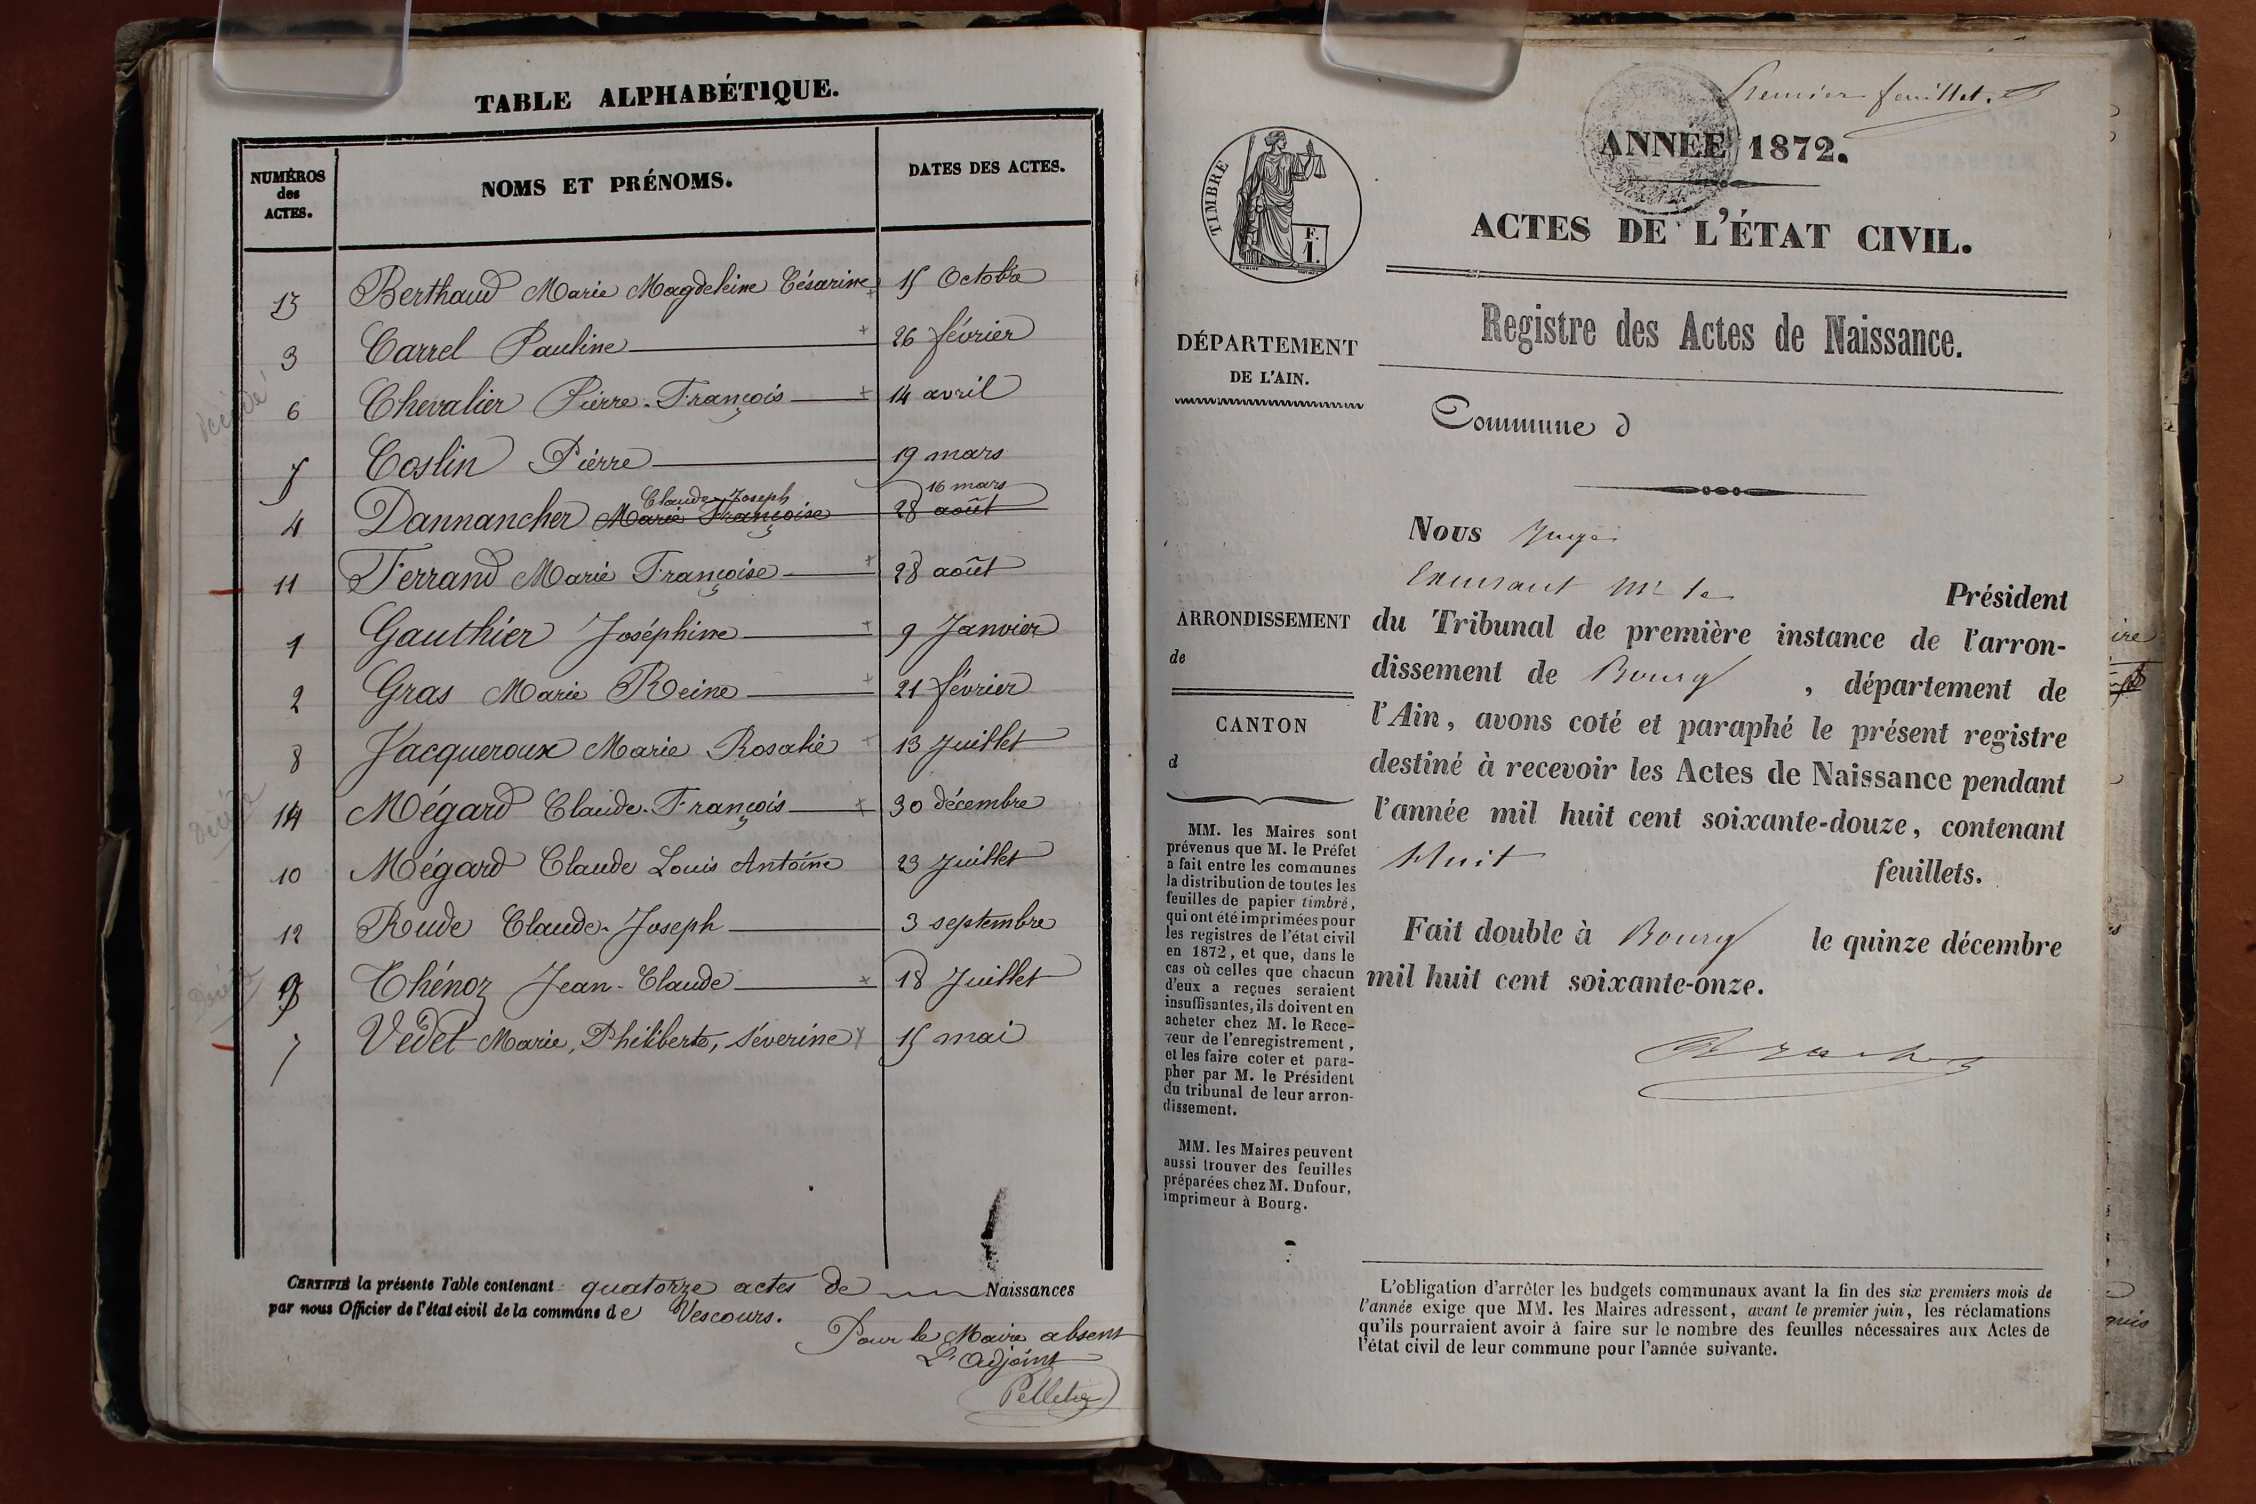 TABLE ALPHABÉTIQUE.
NUMÉROS des ACTES. NOMS ET PRÉNOMS. DATES DES ACTES.
13 Berthaud Marie Magdeleine Césarine 15 Octobre
3 Carrel Pauline 26 février
6 Chevalier Pierre-François 14 avril
5 Coslin Pierre 19 mars
Claude-Joseph 16 mars
4 Dannancher Marie Françoise 28 août
11 Ferrand Marie Françoise 28 août
1 Gauthier Joséphine 9 Janvier
2 Gras Marie Reine 21 février
8 Jacqueroux Marie Rosalie 13 Juillet
14 Mégard Claude-François 30 décembre
10 Mégard Claude Louis Antoine 23 Juillet
12 Rude Claude-Joseph 3 septembre
9 Thénoz Jean-Claude 18 Juillet
7 Védet Marie, Philiberte, Séverine 15 mai
Décédé
Décédé
Décédé
CERTIFIÉ la présente Table contenant quatorze actes de Naissances
par nous Officier de l'état civil de la commune de Vescours.
Pour le Maire absent
L'Adjoint
Premier feuillet.
ANNÉE 1872.
ACTES DE L'ÉTAT CIVIL.
TIMBRE
F.
1.
Registre des Actes de Naissance.
DÉPARTEMENT
DE L'AIN.
Commune d
ARRONDISSEMENT
de
CANTON
d
MM. les Maires sont
prévenus que M. le Préfet
a fait entre les communes
la distribution de toutes les
feuilles de papier timbré,
qui ont été imprimées pour
les registres de l'état civil
en 1872, et que, dans le
cas où celles que chacun
d'eux a reçues seraient
insuffisantes, ils doivent en
acheter chez M. le Rece-
veur de l'enregistrement,
et les faire coter et para-
pher par M. le Président
du tribunal de leur arron-
dissement.
MM. les Maires peuvent
aussi trouver des feuilles
préparées chez M. Dufour,
imprimeur à Bourg.
Nous Juge
Président
du Tribunal de première instance de l'arron-
dissement de Bourg, département de
l'Ain, avons coté et paraphé le présent registre
destiné à recevoir les Actes de Naissance pendant
l'année mil huit cent soixante-douze, contenant
Huit feuillets.
Fait double à Bourg le quinze décembre
mil huit cent soixante-onze.
L'obligation d'arrêter les budgets communaux avant la fin des six premiers mois de
l'année exige que MM. les Maires adressent, avant le premier juin, les réclamations
qu'ils pourraient avoir à faire sur le nombre des feuilles nécessaires aux Actes de
l'état civil de leur commune pour l'année suivante.